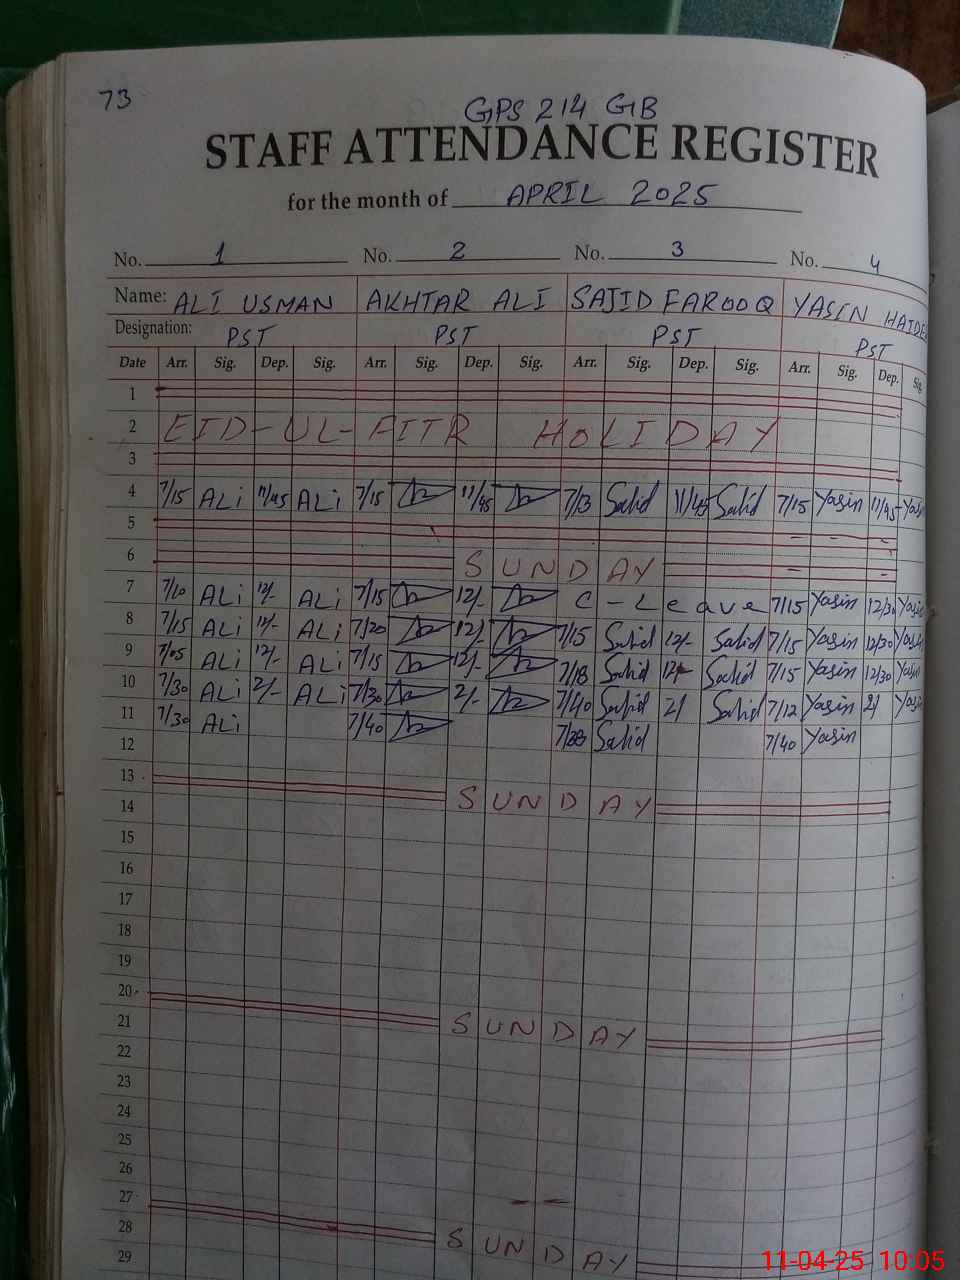 73
GPS 214 GB
STAFF ATTENDANCE REGISTER
for the month of APRIL 2025
No. 1 No. 2 No. 3 No. 4
Name: ALI USMAN AKHTAR ALI SAJID FAROOQ YASIN HAIDE
Designation: PST PST PST PST
Date Arr. Sig. Dep. Sig. Arr. Sig. Dep. Sig. Arr. Sig. Dep. Sig. Arr. Sig. Dep. Sig
1
2 EID-UL-FITR HOLIDAY
3
4 7/15 ALi 11/45 ALi 7/15 11/45 7/13 Sajid 11/45 Sajid 7/15 Yasin 11/45 Yasi
5
6 SUNDAY
7 7/10 ALi 12/- ALi 7/15 12/- C-Leave 7/15 Yasin 12/30 Yasi
8 7/15 ALi 12/- ALi 7/20 12/- 7/15 Sajid 12/- Sajid 7/15 Yasin 12/30 Yasi
9 7/05 ALi 12/- ALi 7/15 12/- 7/18 Sajid Sajid 7/15 Yasin 12/30 Yasi
10 7/30 ALi 2/- ALi 7/30 2/- 7/40 Sajid 2/ Sajid 7/12 Yasin 2/ Yasi
11 7/30 ALi 7/40 Sajid 7/40 Yasin
12
13
14 SUNDAY
15
16
17
18
19
20
21 SUNDAY
22
23
24
25
26
27
28 SUNDAY
29
11-04-25 10:05